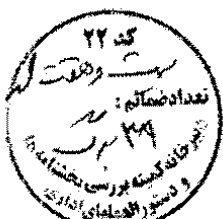 کد ۲۲
بیست و هفت
تعداد ضمائم:
دبیرخانه کمیته بررسی بخشنامه ها
و دستورالعملهای اداری